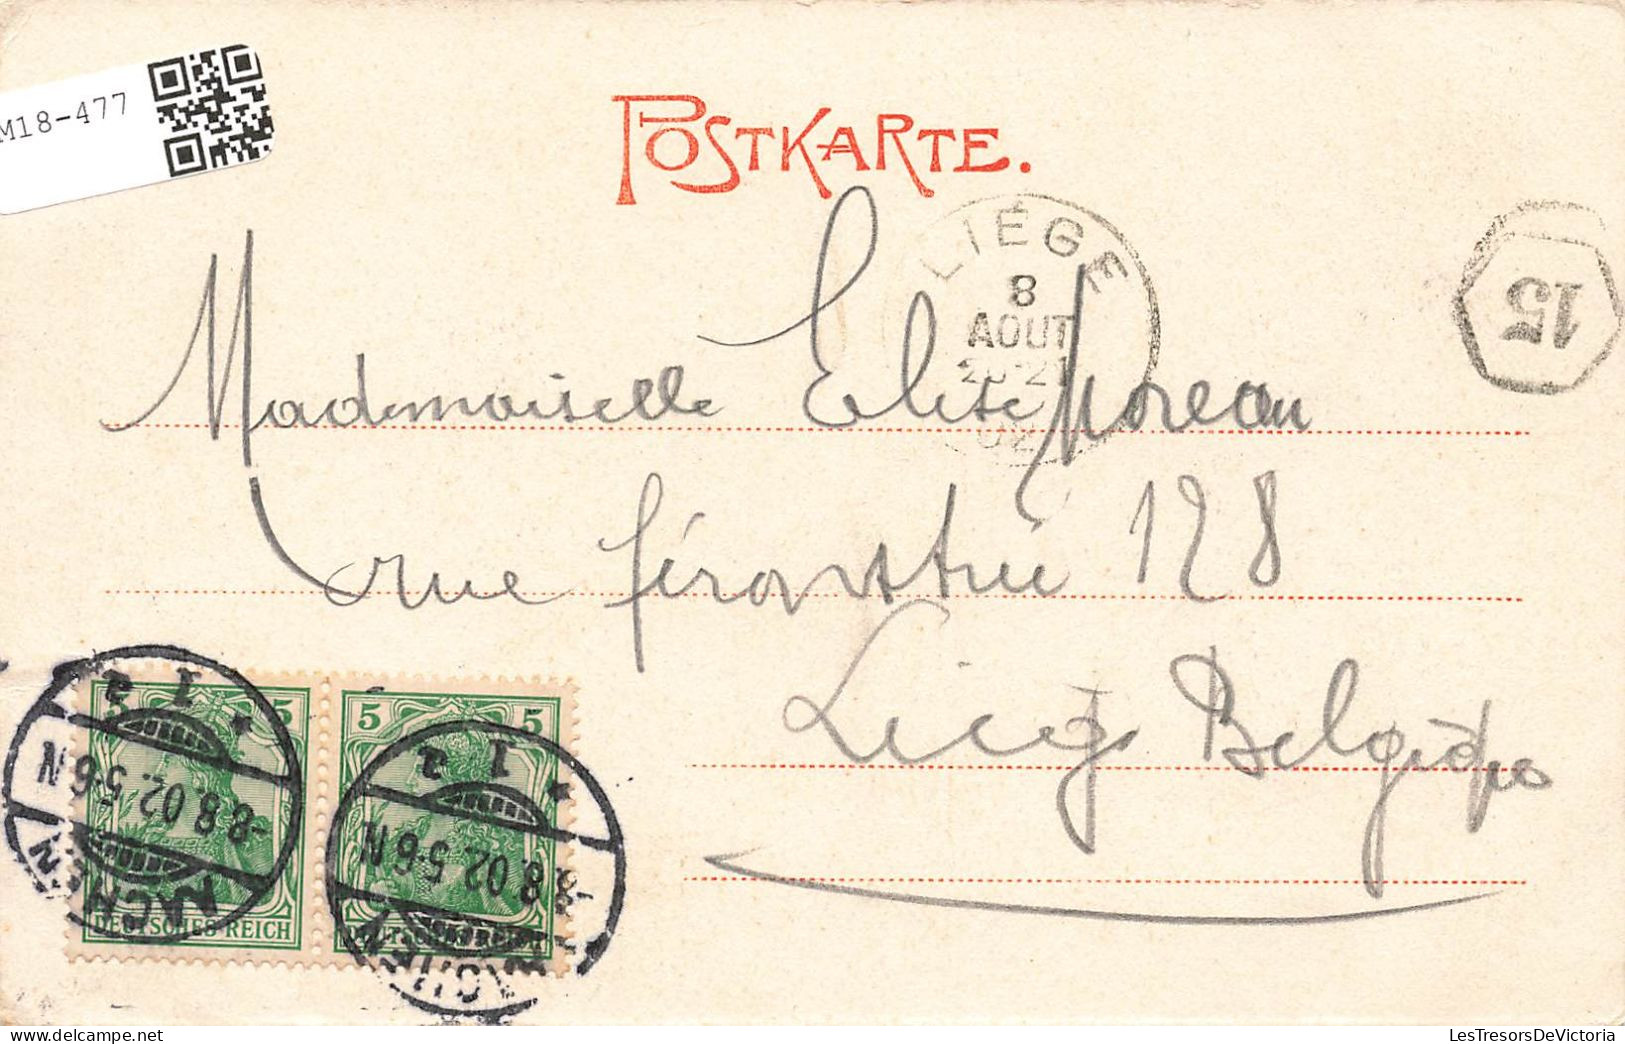 M18-477
POSTKARTE.
LIÉGE
8
AOUT
02
15
Mademoiselle Elise Moreau
rue féronstrée 128
Liège Belgique
5 5 5
1 a
-8.8.02.5-6N
AACHEN
DEUTSCHES REICH
1 a
8.02.5-6N
DEUTSCHES REICH
LesTresorsDeVictoria